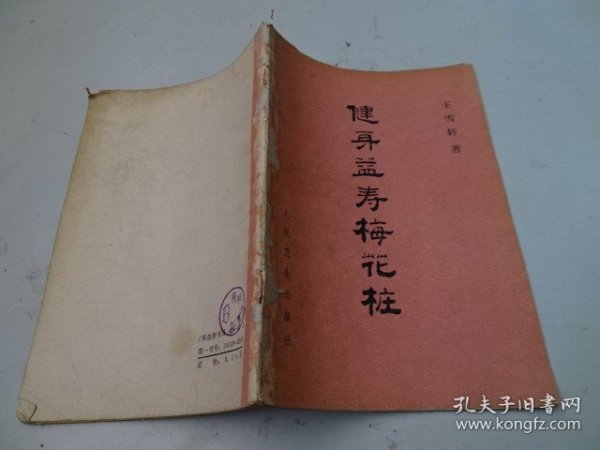 健身益寿梅花桩
王雪轩 著
人民卫生出版社
统一书号:
定价:
孔夫子旧书网
www.kongfz.com